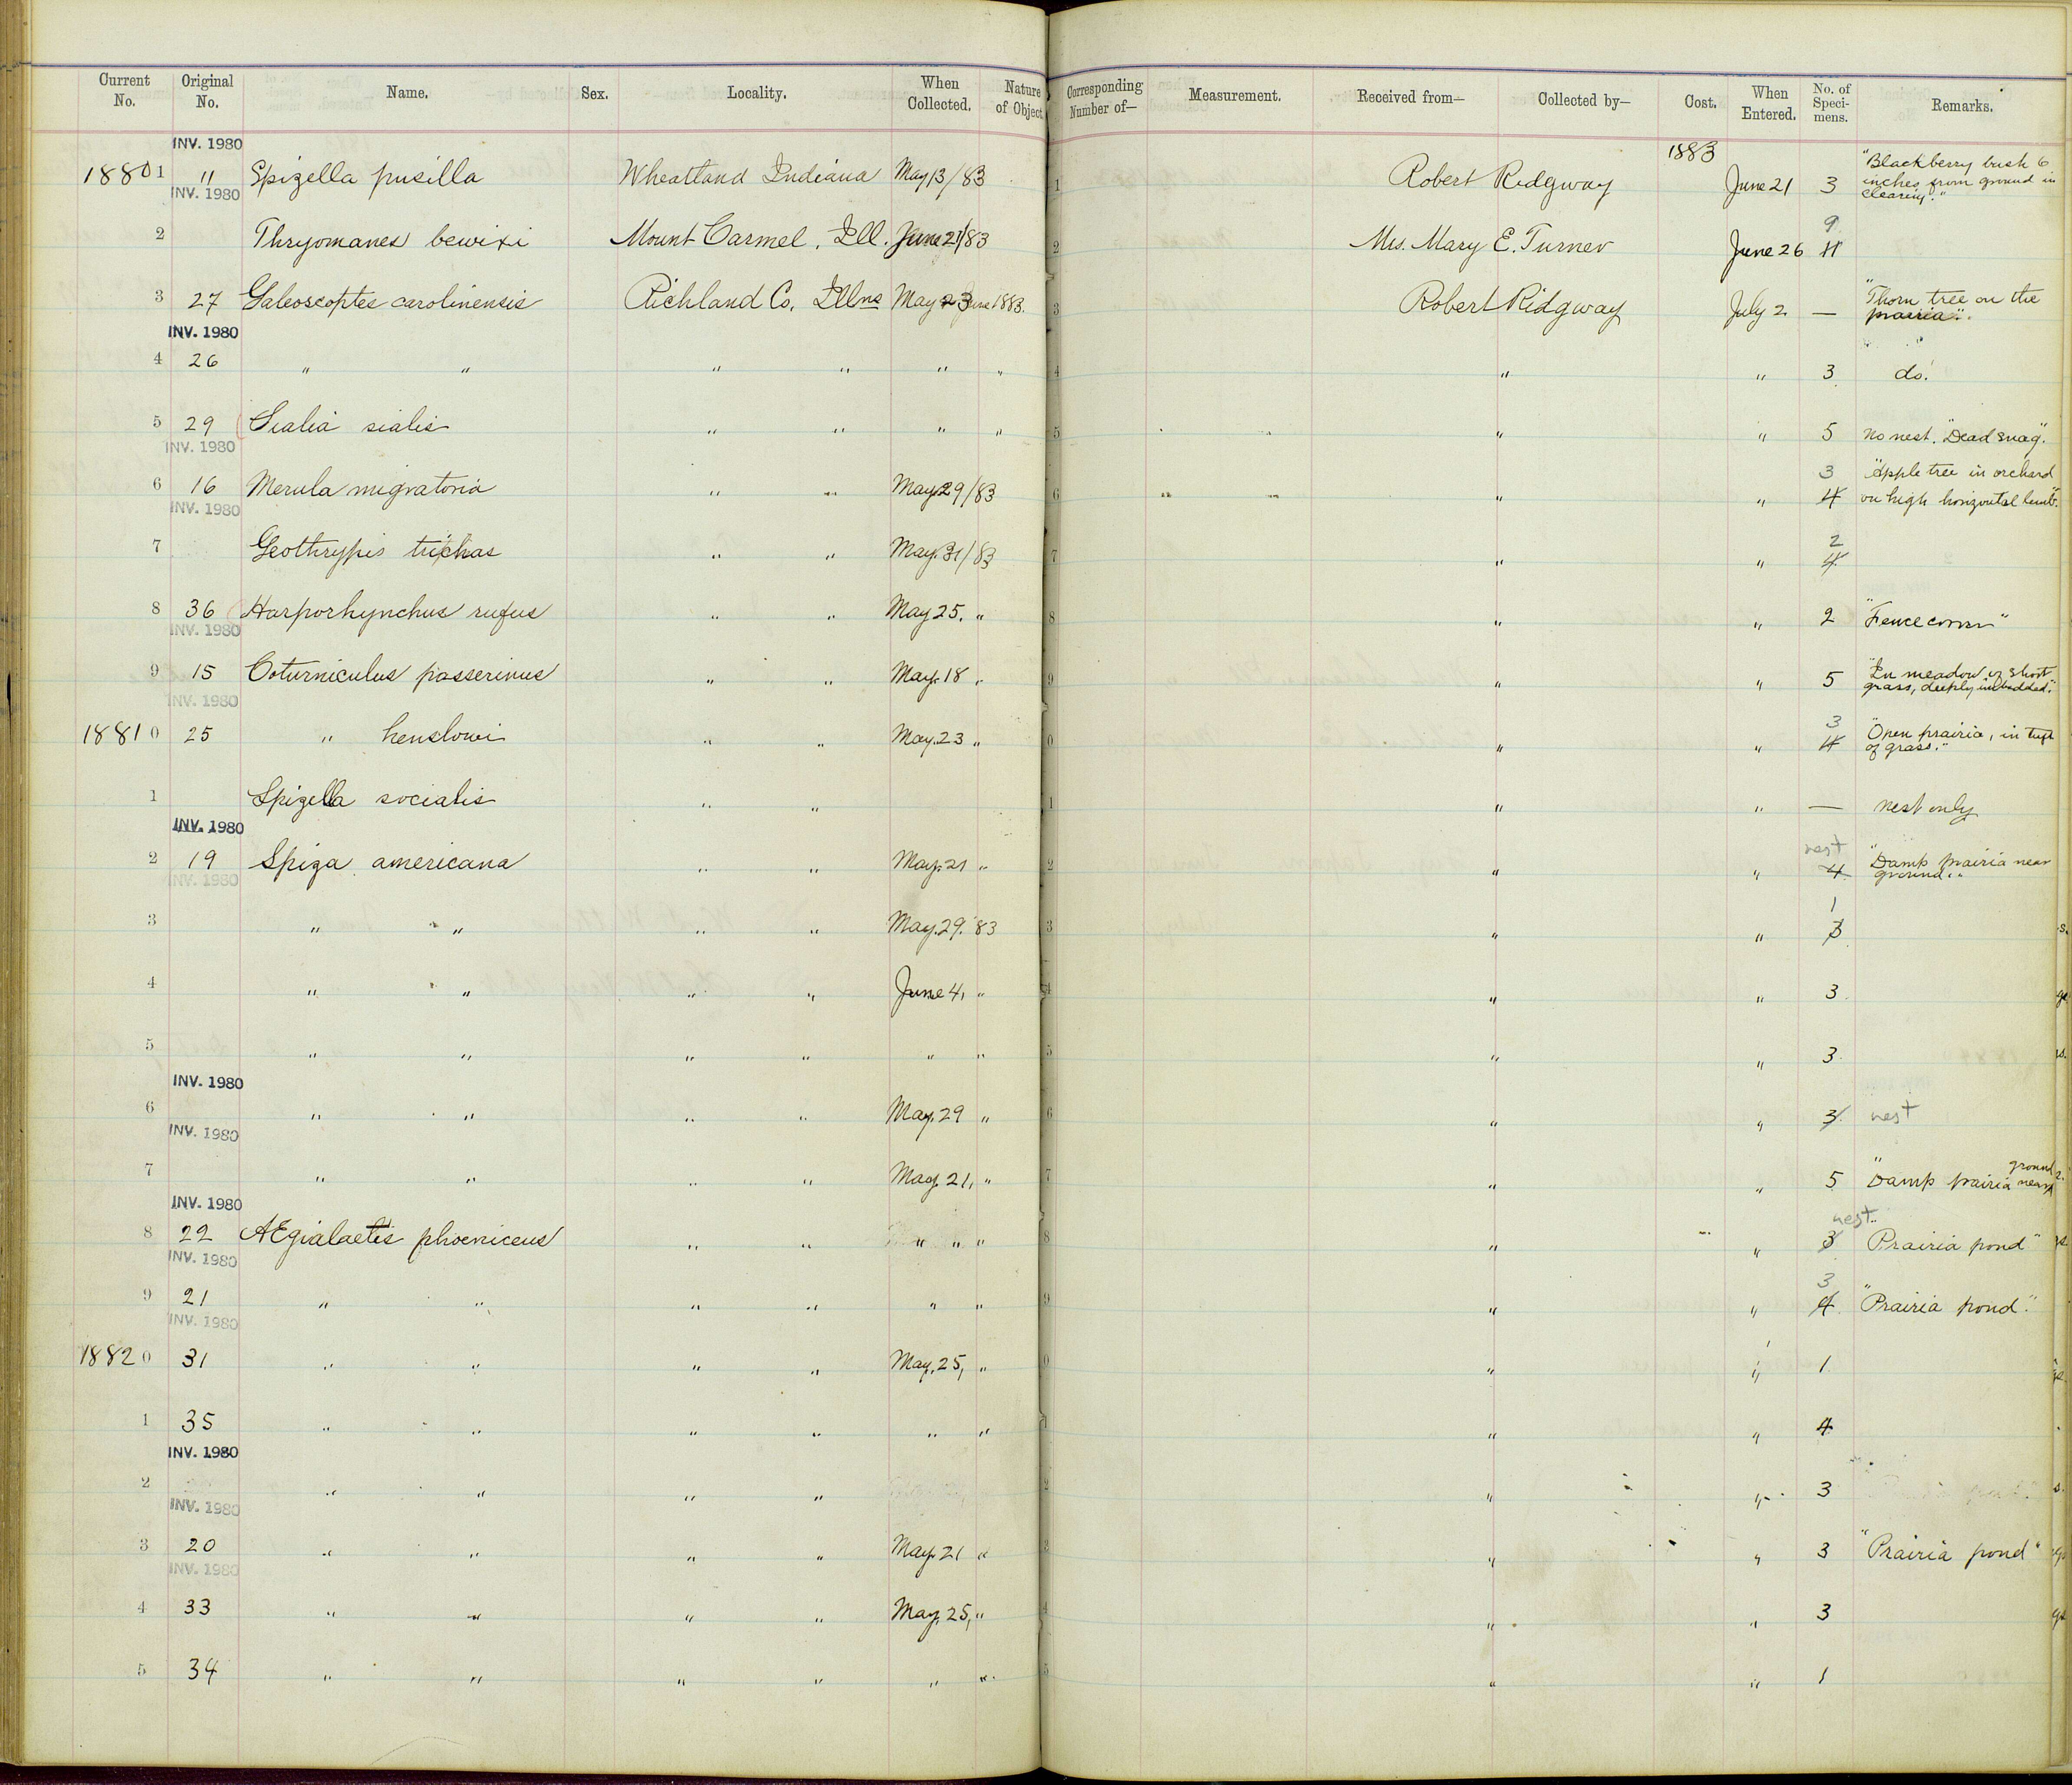 Current No. Original No. Name. Sex. Locality. When Collected. Nature of Object. Corresponding Number of— Measurement. Received from— Collected by— Cost. When Entered. No. of Speci-mens. Remarks.
INV. 1980
1883
18801 11 Spizella pusilla Wheatland Indiana May 13/83 1 Robert Ridgway June 21 3 "Blackberry bush 6 inches from ground in clearing."
INV. 1980
2 Thryomanes bewixi Mount Carmel, Ill. June 21/83 2 Mrs. Mary E. Turner June 26 9
3 27 Galeoscoptes carolinensis Richland Co. Illns May 23 June 1883. 3 Robert Ridgway July 2 — "Thorn tree on the prairia".
INV. 1980
4 26 " " " " " " 4 " " 3 do.
5 29 Sialia sialis " " " " 5 " " 5 No nest. "Dead snag".
INV. 1980
6 16 Merula migratoria " " May 29/83 6 " " 3 4 "Apple tree in orchard on high horizontal limb".
INV. 1980
7 Geothrypis trichas " " May. 31/83 7 " " 2 4
8 36 Harporhynchus rufus " " May 25. " 8 " " 2 "Fence corner"
INV. 1980
9 15 Coturniculus passerinus " " May. 18 " 9 " " 5 "In meadow of short grass, deeply imbedded."
INV. 1980
18810 25 " henslowi " " May. 23 " 0 " " 3 4 "Open prairia, in tuft of grass."
1 Spizella socialis " " 1 " " — nest only
INV. 1980
2 19 Spiza americana " " May. 21 " 2 " " nest 4 "Damp prairia near ground."
INV. 1980
3 " " " " May. 29. '83 3 " " 1 3
4 " " " " June 4, " 4 " " 3
5 " " " " " " 5 " " 3
INV. 1980
6 " " " " May. 29 " 6 " " 3 nest
INV. 1980
7 " " " " May. 21, " 7 " " 5 "Damp prairia near ground
INV. 1980
8 22 AEgialaetis phoeniceus " " " " " 8 " " nest 3 Prairia pond"
INV. 1980
9 21 " " " " " " 9 " " 3 4 "Prairia pond".
INV. 1980
18820 31 " " " " May. 25, " 0 " " 1
1 35 " " " " " " 1 " " 4
INV. 1980
2 " " " " 2 " " 3
INV. 1980
3 20 " " " " May. 21 " 3 " " 3 "Prairia pond"
INV. 1980
4 33 " " " " May. 25, " 4 " " 3
5 34 " " " " " " 5 " " 1